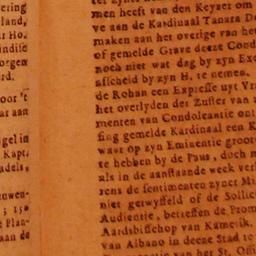 ering
land,
ar Ho.
indise
orgen
rd.
oor 't
at aan
gel in
Kapt.
adels,
uwen-
; 150
Plan-
aan de
men heeft van den Keyzer om
ve aan de Kardinaal Tanara De
maken aan het overige van het
of gemelde Grave deeze Cond
noch niet wat dag by zyn Exc
afscheid by zyn H. te nemen.
de Rohan een Expresse uyt Vra
het overlyden der Zuster van
menten van Condoleantie ont
fing gemelde Kardinaal een K
waar op zyn Eminentie groot
te hebben by de Paus, doch
als in de aanstaande week ver
rens de sentimenten zynet M
niet getwyffeld of de Sollic
Audientie, betreffen de Prom
Aardsbisschop van Kamerik.
van Albano in deeze Stad te
van het St. Offi